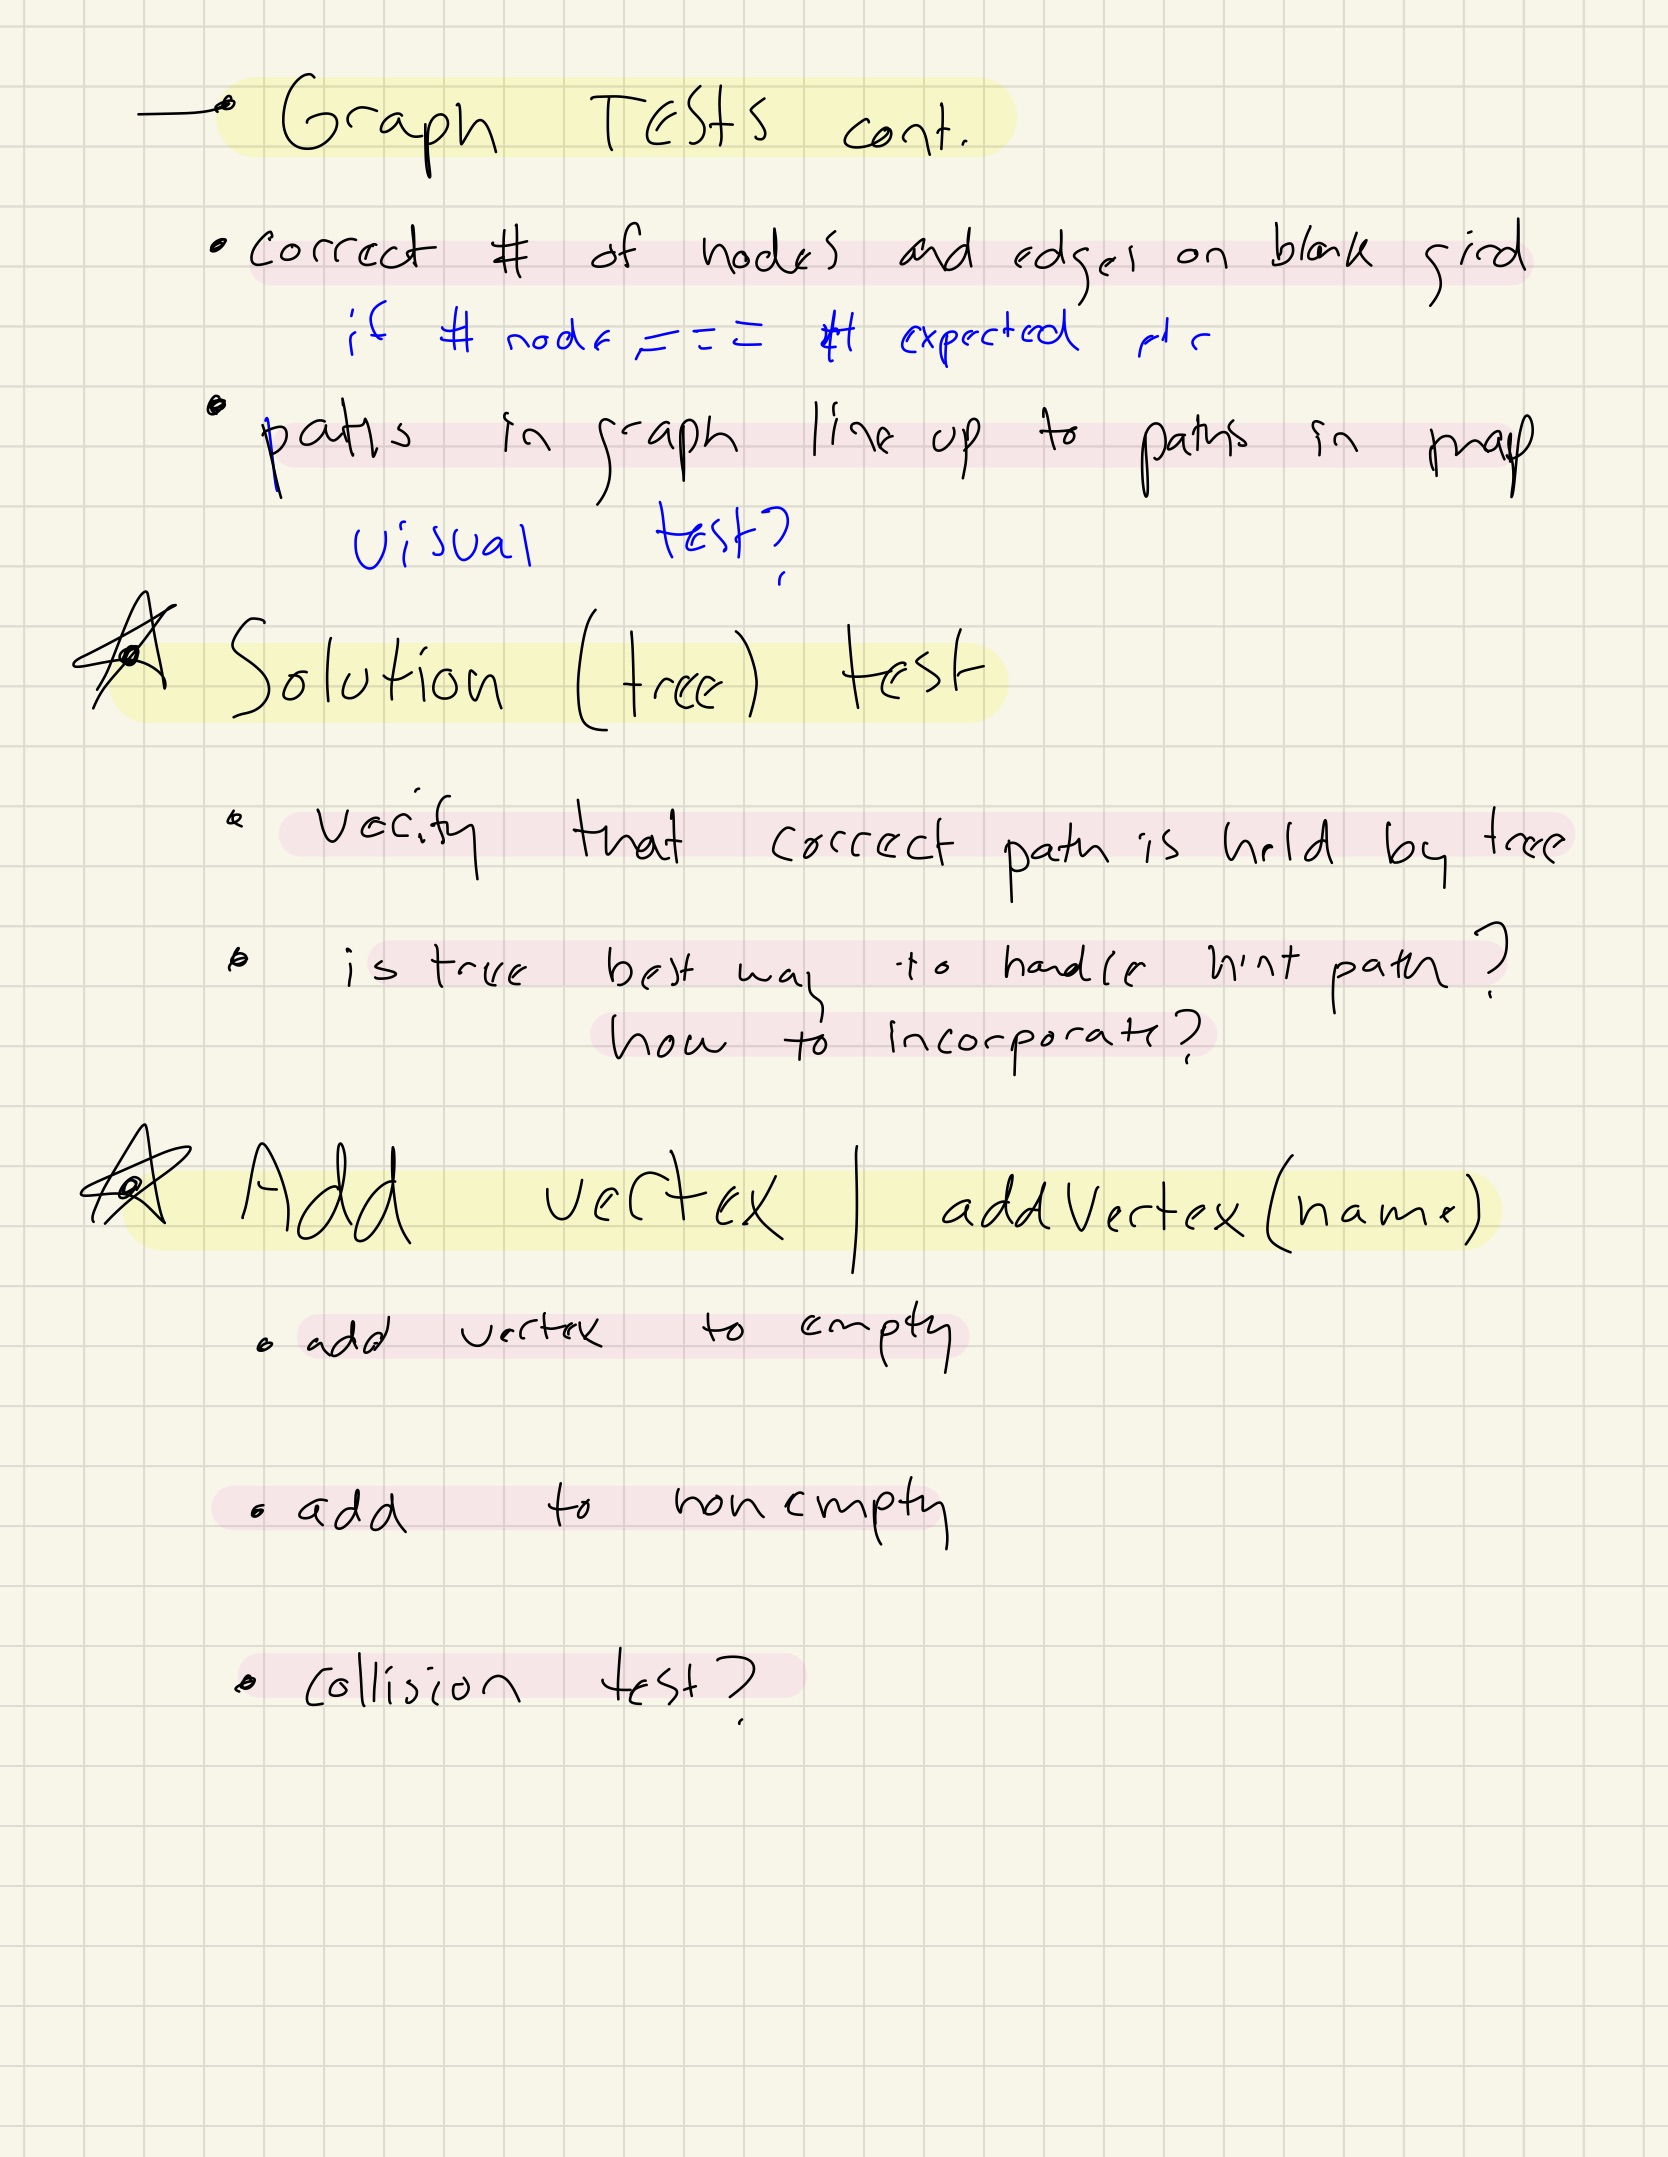 Graph Tests cont.
• correct # of nodes and edges on blank gird
if # node === # expected etc
• paths in graph line up to paths in map
visual test?
Solution (tree) test
• verify that correct path is held by tree
• is tree best way to handle hint path?
how to incorporate?
Add vertex | addVertex(name)
• add vertex to empty
• add to nonempty
• collision test?